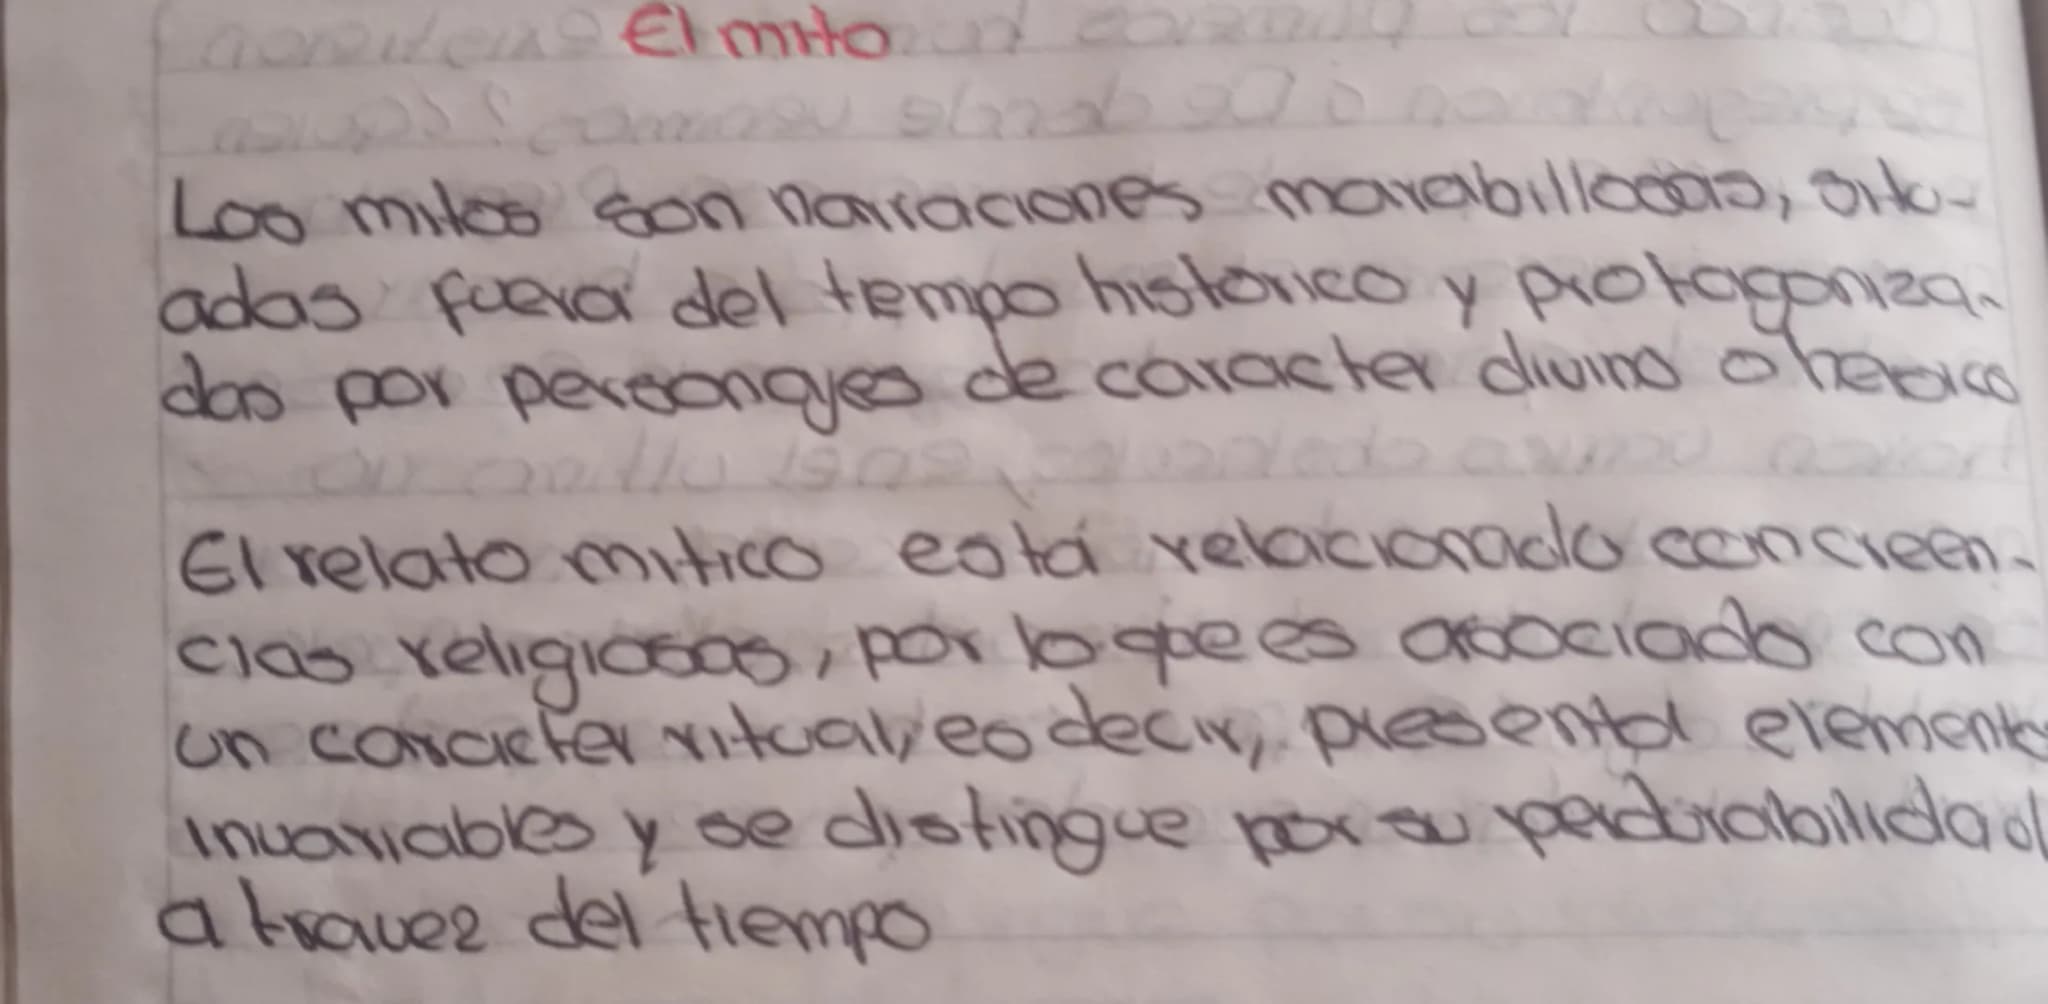 El mito
Los mitos son narraciones marabillosas, situ-
adas fuera del tempo historico y protagoniza-
das por personajes de caracter divino o heroico
El relato mitico está relacionado con creen-
cias religiosas, por lo que es asociado con
un caracter ritual, es decir, presenta elementos
invariables y se distingue por su perdurabilidad
a travez del tiempo